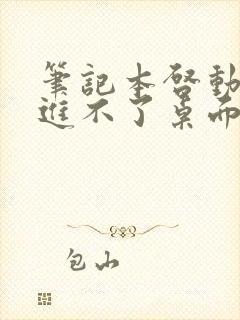 筆記本啓動
進不了桌面
包山